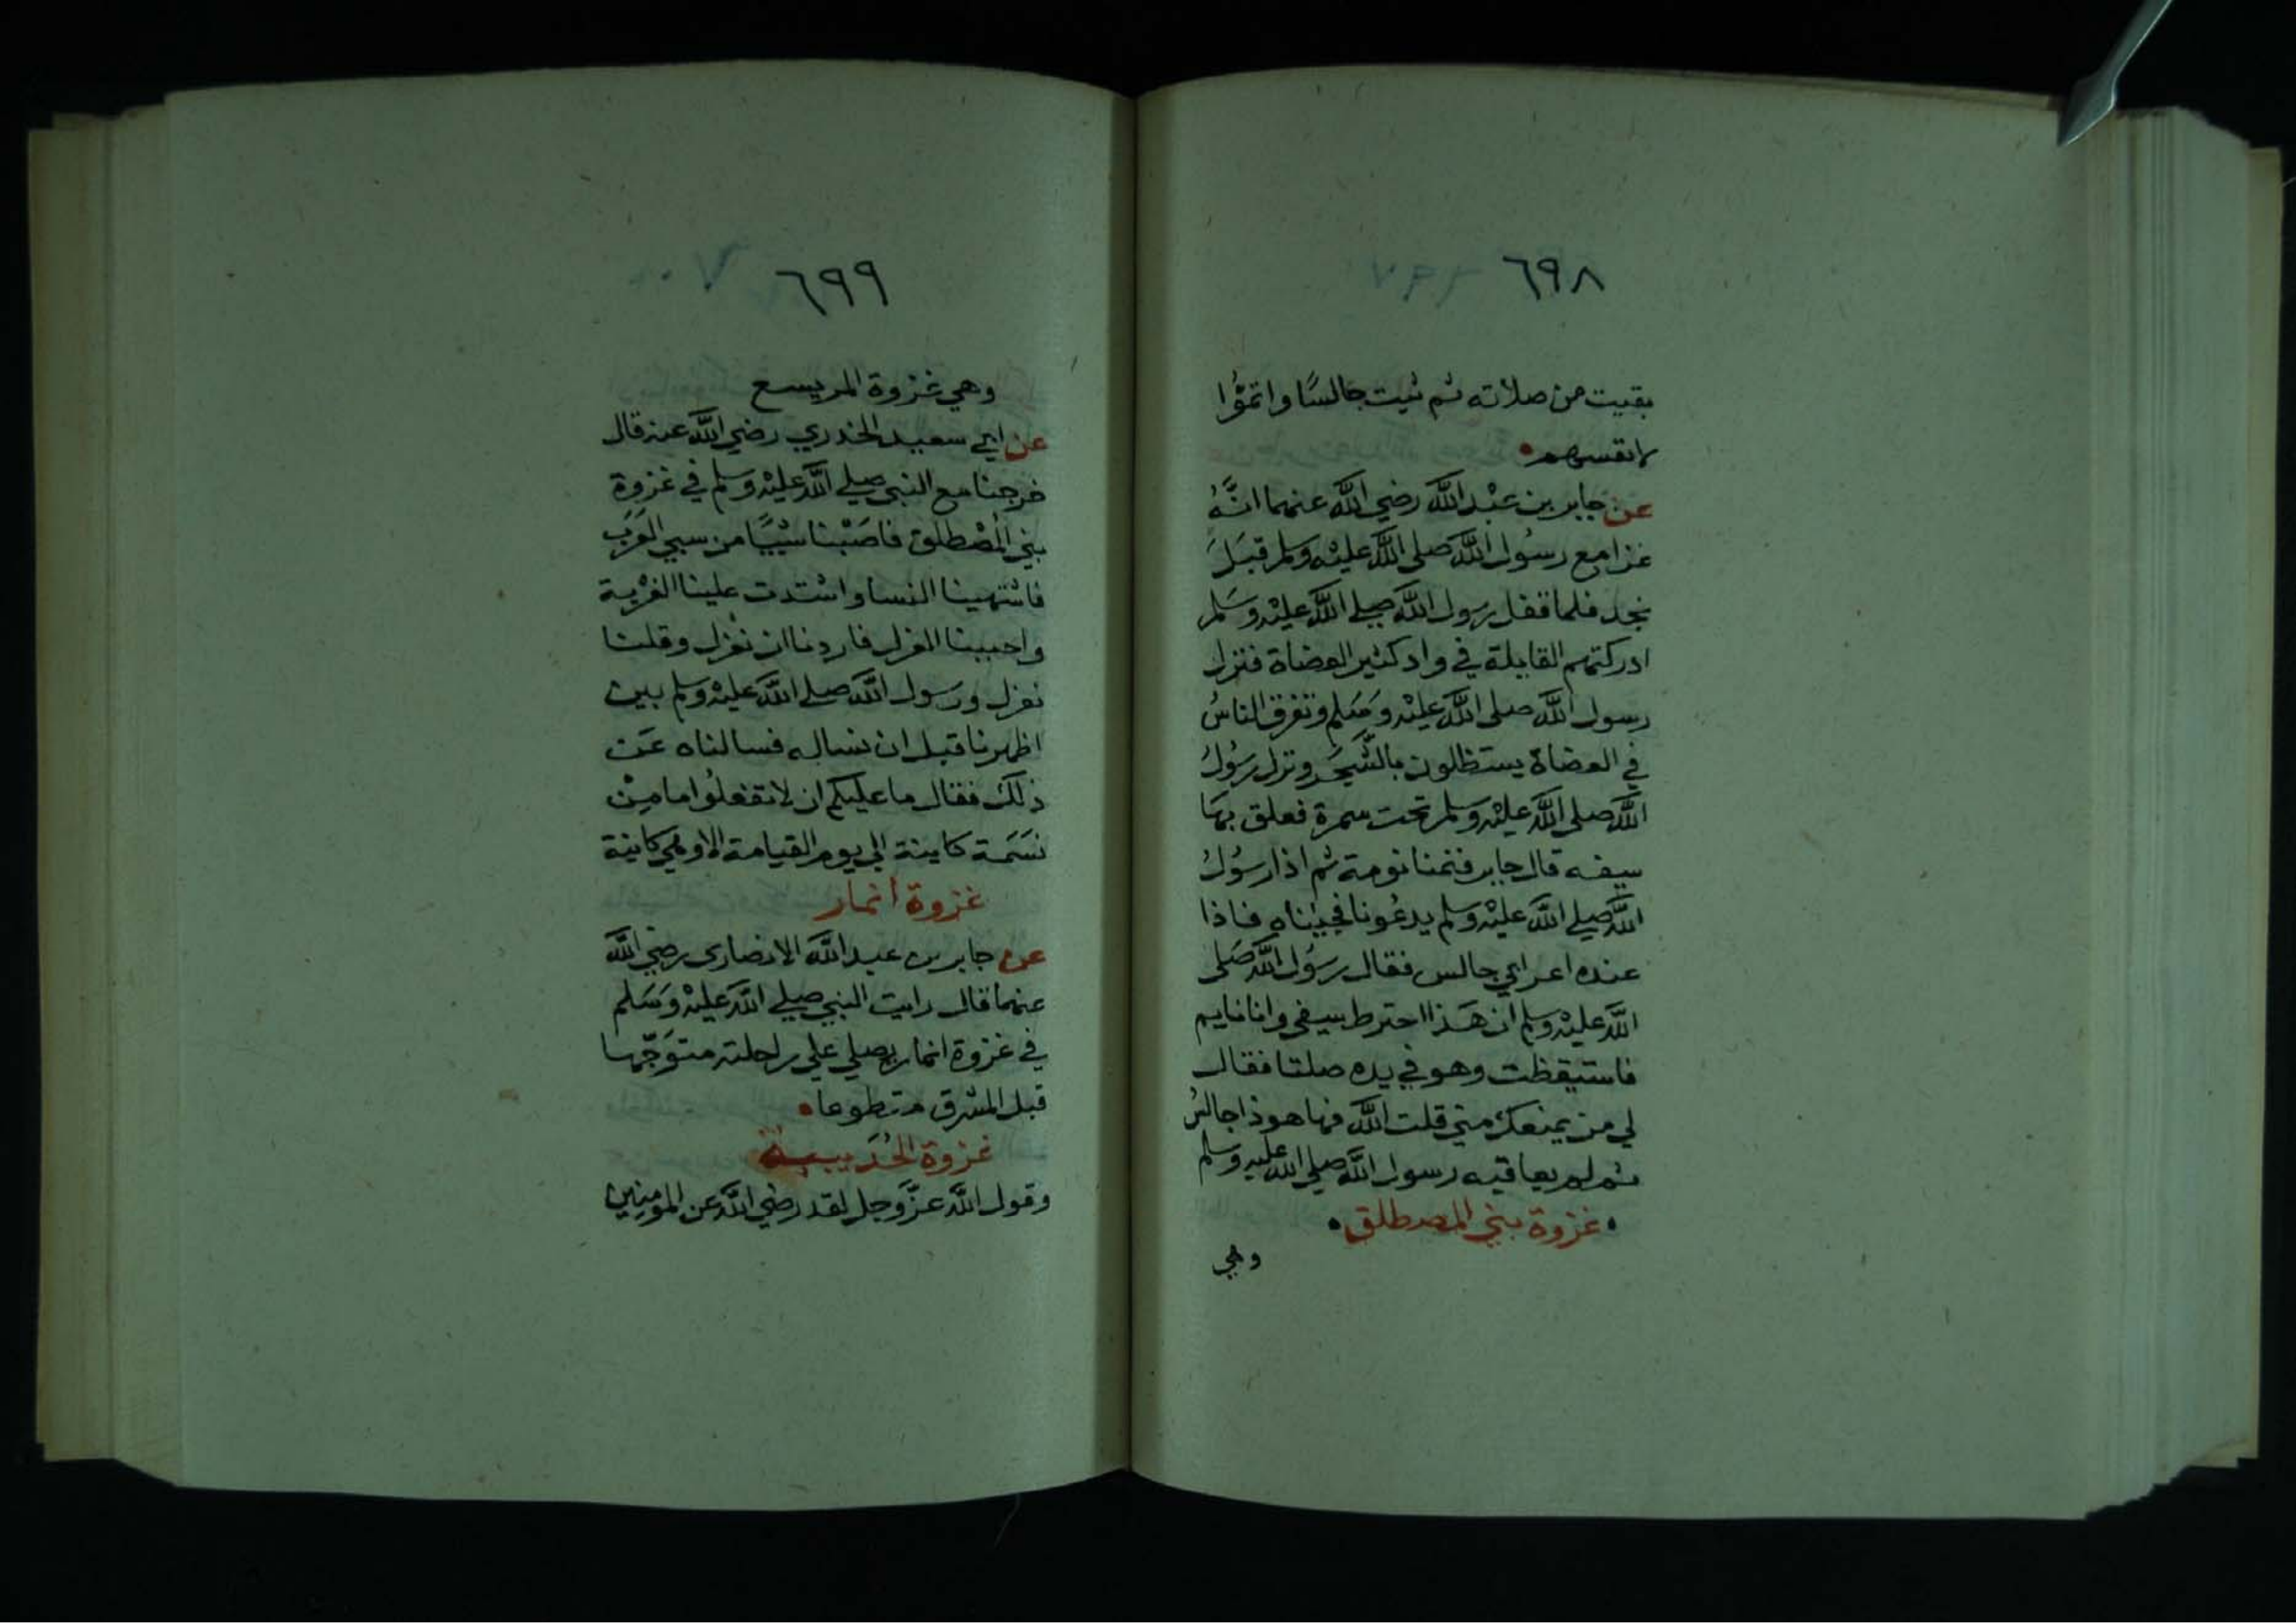 ٦٩٨
بقيت من صلاته ثم ثبت جالسًا واتمُّوا
لانفسهم
عن جابر بن عبْد الله رضي الله عنهما انَّهُ
غزا مع رسُول الله صلى الله عليْه وسلم قبَلَ
نجد فلما قفل رسول الله صلي الله عليْه وسَلم
ادركتهم القايلة في واد كثير العضاة فنزل
رسول الله صلى الله عليْه وسَلم وتفرق الناسُ
في العضاة يستظلون بالشَّجَر ونزل رسُولُ
الله صلى الله عليْه وسلم تحت سمرة فعلق بهَا
سيفه قال جابر فنمنا نومة ثم اذا رسُولُ
الله صلي الله عليْه وسلم يدعُونا فجيْناه فاذا
عنده اعرابي جالس فقال رسُول الله صَلى
الله عليْه وسلم ان هَذا اخترط سيفي وانا نايم
فاستيقظت وهو في يده صلتا فقال
لي من يمنعك مني قلت الله فها هو ذا جالسُ
ثم لم يعاقبه رسول الله صلي الله عليه وسلم
غزوة بني المصطلق
وهي
٦٩٩
وهي غزوة المريسع
عن ابي سعيد الخدري رضي الله عنه قال
خرجنا مع النبي صلي الله عليْه وسلم في غزوة
بني المُصْطلق فاصَبْنا سَبْيًا من سبي العَرَب
فاشتهينا النسا واشتدت علينا الغرْبة
واحببنا العزل فاردنا ان نعْزل وقلنا
نعزل ورسول الله صلي الله عليْه وسلم بين
اظهرنا قبل ان نساله فسالناه عَن
ذلك فقال ما عليكم ان لا تفعلُوا ما منْ
نسَمَة كاينة الي يوم القيامة الا وهي كاينة
غزوة انمار
عن جابر بن عبد الله الانصاري رضي الله
عنهما قال رايت النبي صلي الله عليْه وَسَلم
في غزوة انمار يصلي علي راحلته متوَجّها
قبل المشرق متطوعا
غزوة الحُدَيبية
وقول الله عزَّ وجل لقد رضي الله عن المومنين